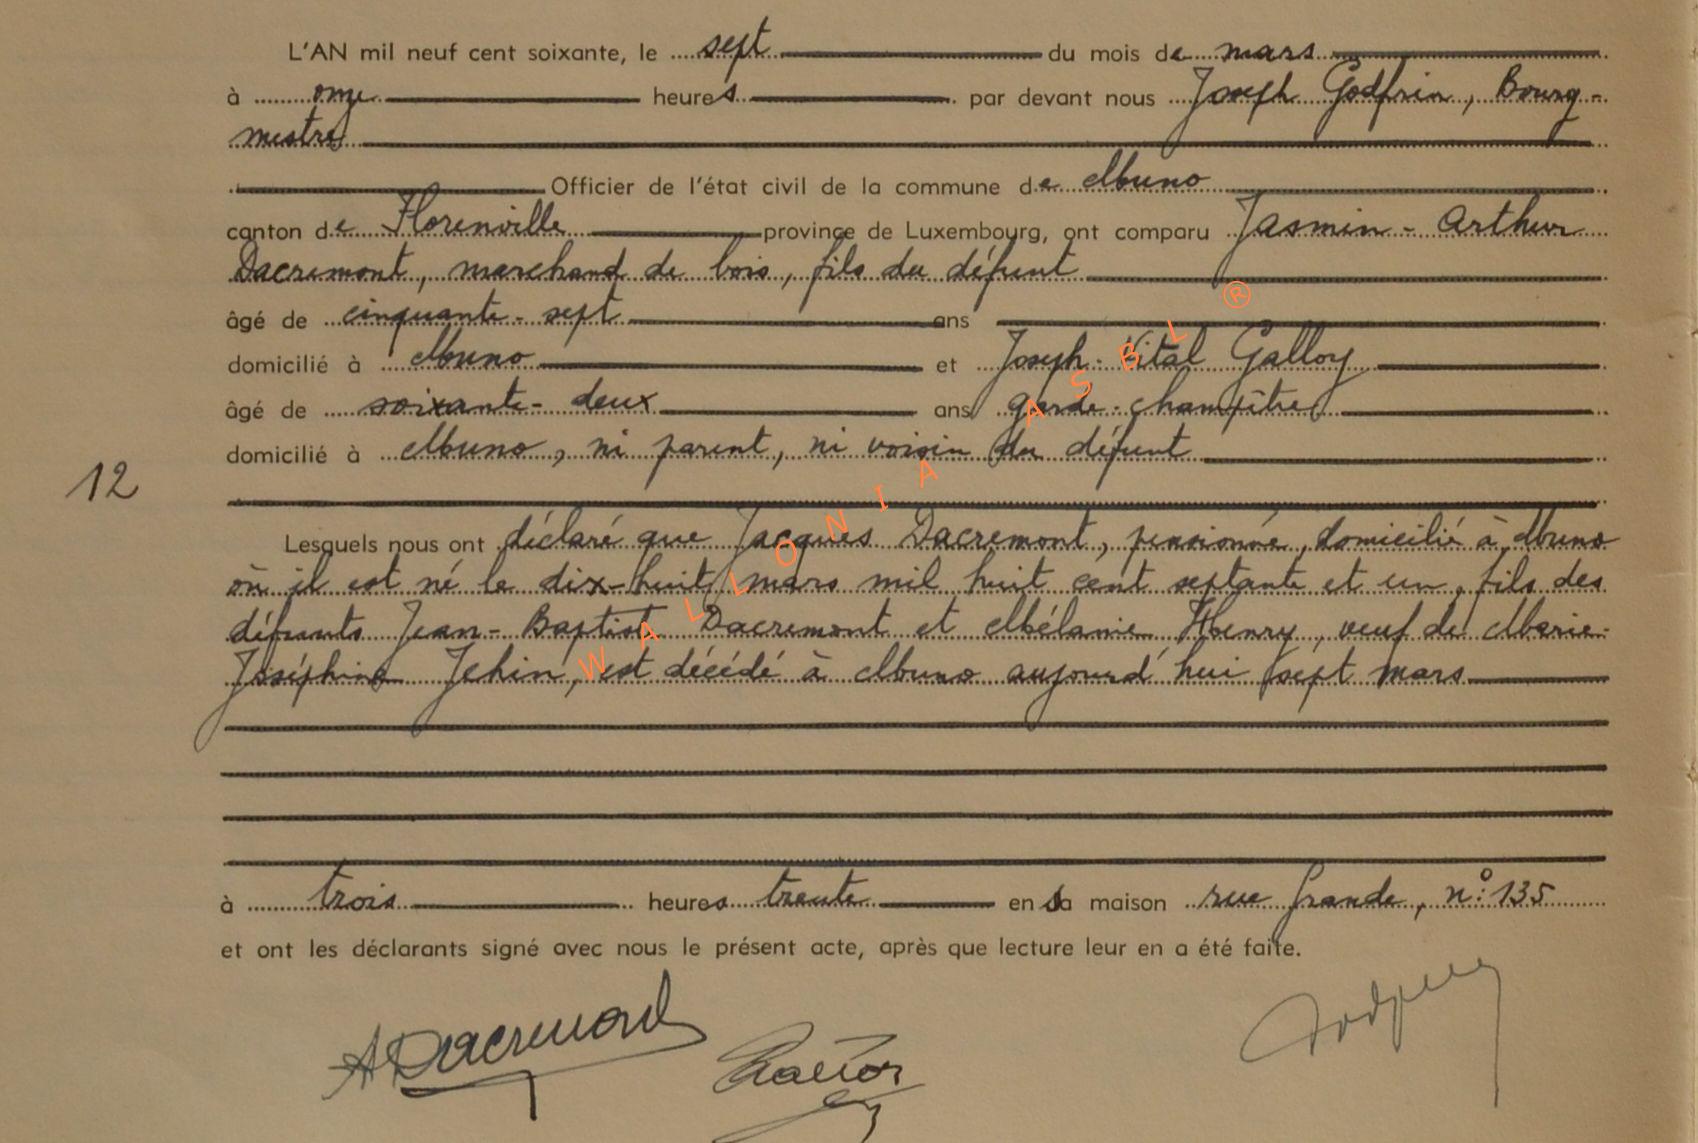 L'AN mil neuf cent soixante, le sept du mois de mars
à onze heures par devant nous Joseph Godfrin, Bourg-
mestre
Officier de l'état civil de la commune de Muno
canton de Florenville province de Luxembourg, ont comparu Jasmin-Arthur
Dacremont, marchand de bois, fils du défunt
âgé de cinquante-sept ans
domicilié à Muno et Joseph-Vital Galloy
âgé de soixante-deux ans garde-champêtre
domicilié à Muno, ni parent, ni voisin du défunt
12
Lesquels nous ont déclaré que Jacques Dacremont, pensionné, domicilié à Muno
où il est né le dix-huit mars mil huit cent septante et un, fils des
défunts Jean-Baptiste Dacremont et Mélanie Henry, veuf de Marie-
Joséphine Jehin, est décédé à Muno aujourd'hui sept mars
à trois heures trente en sa maison rue Grande, n° 135
et ont les déclarants signé avec nous le présent acte, après que lecture leur en a été faite.
ADacremont
WALLONIA ASBL ®